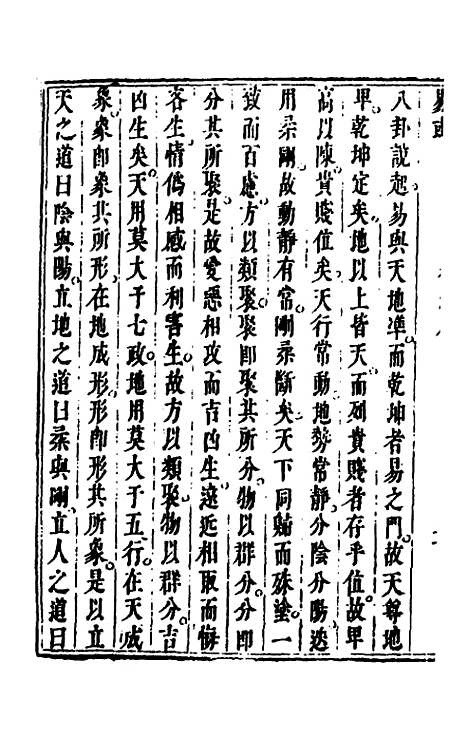 八卦說起易與天地準而乾坤者易之門故天尊地
卑乾坤定矣地以上皆天而列貴賤者存乎位故卑
高以陳貴賤位矣天行常動地勢常靜分陰分陽迭
用柔剛故動靜有常剛柔斷矣天下同歸而殊塗一
致而百慮方以類聚聚卽聚其所分物以群分分卽
分其所聚是故愛惡相攻而吉凶生遠近相取而悔
吝生情僞相感而利害生故方以類聚物以群分吉
凶生矣天用莫大于七政地用莫大于五行在天成
象象卽象其所形在地成形形卽形其所象是以立
天之道曰陰與陽立地之道曰柔與剛立人之道曰